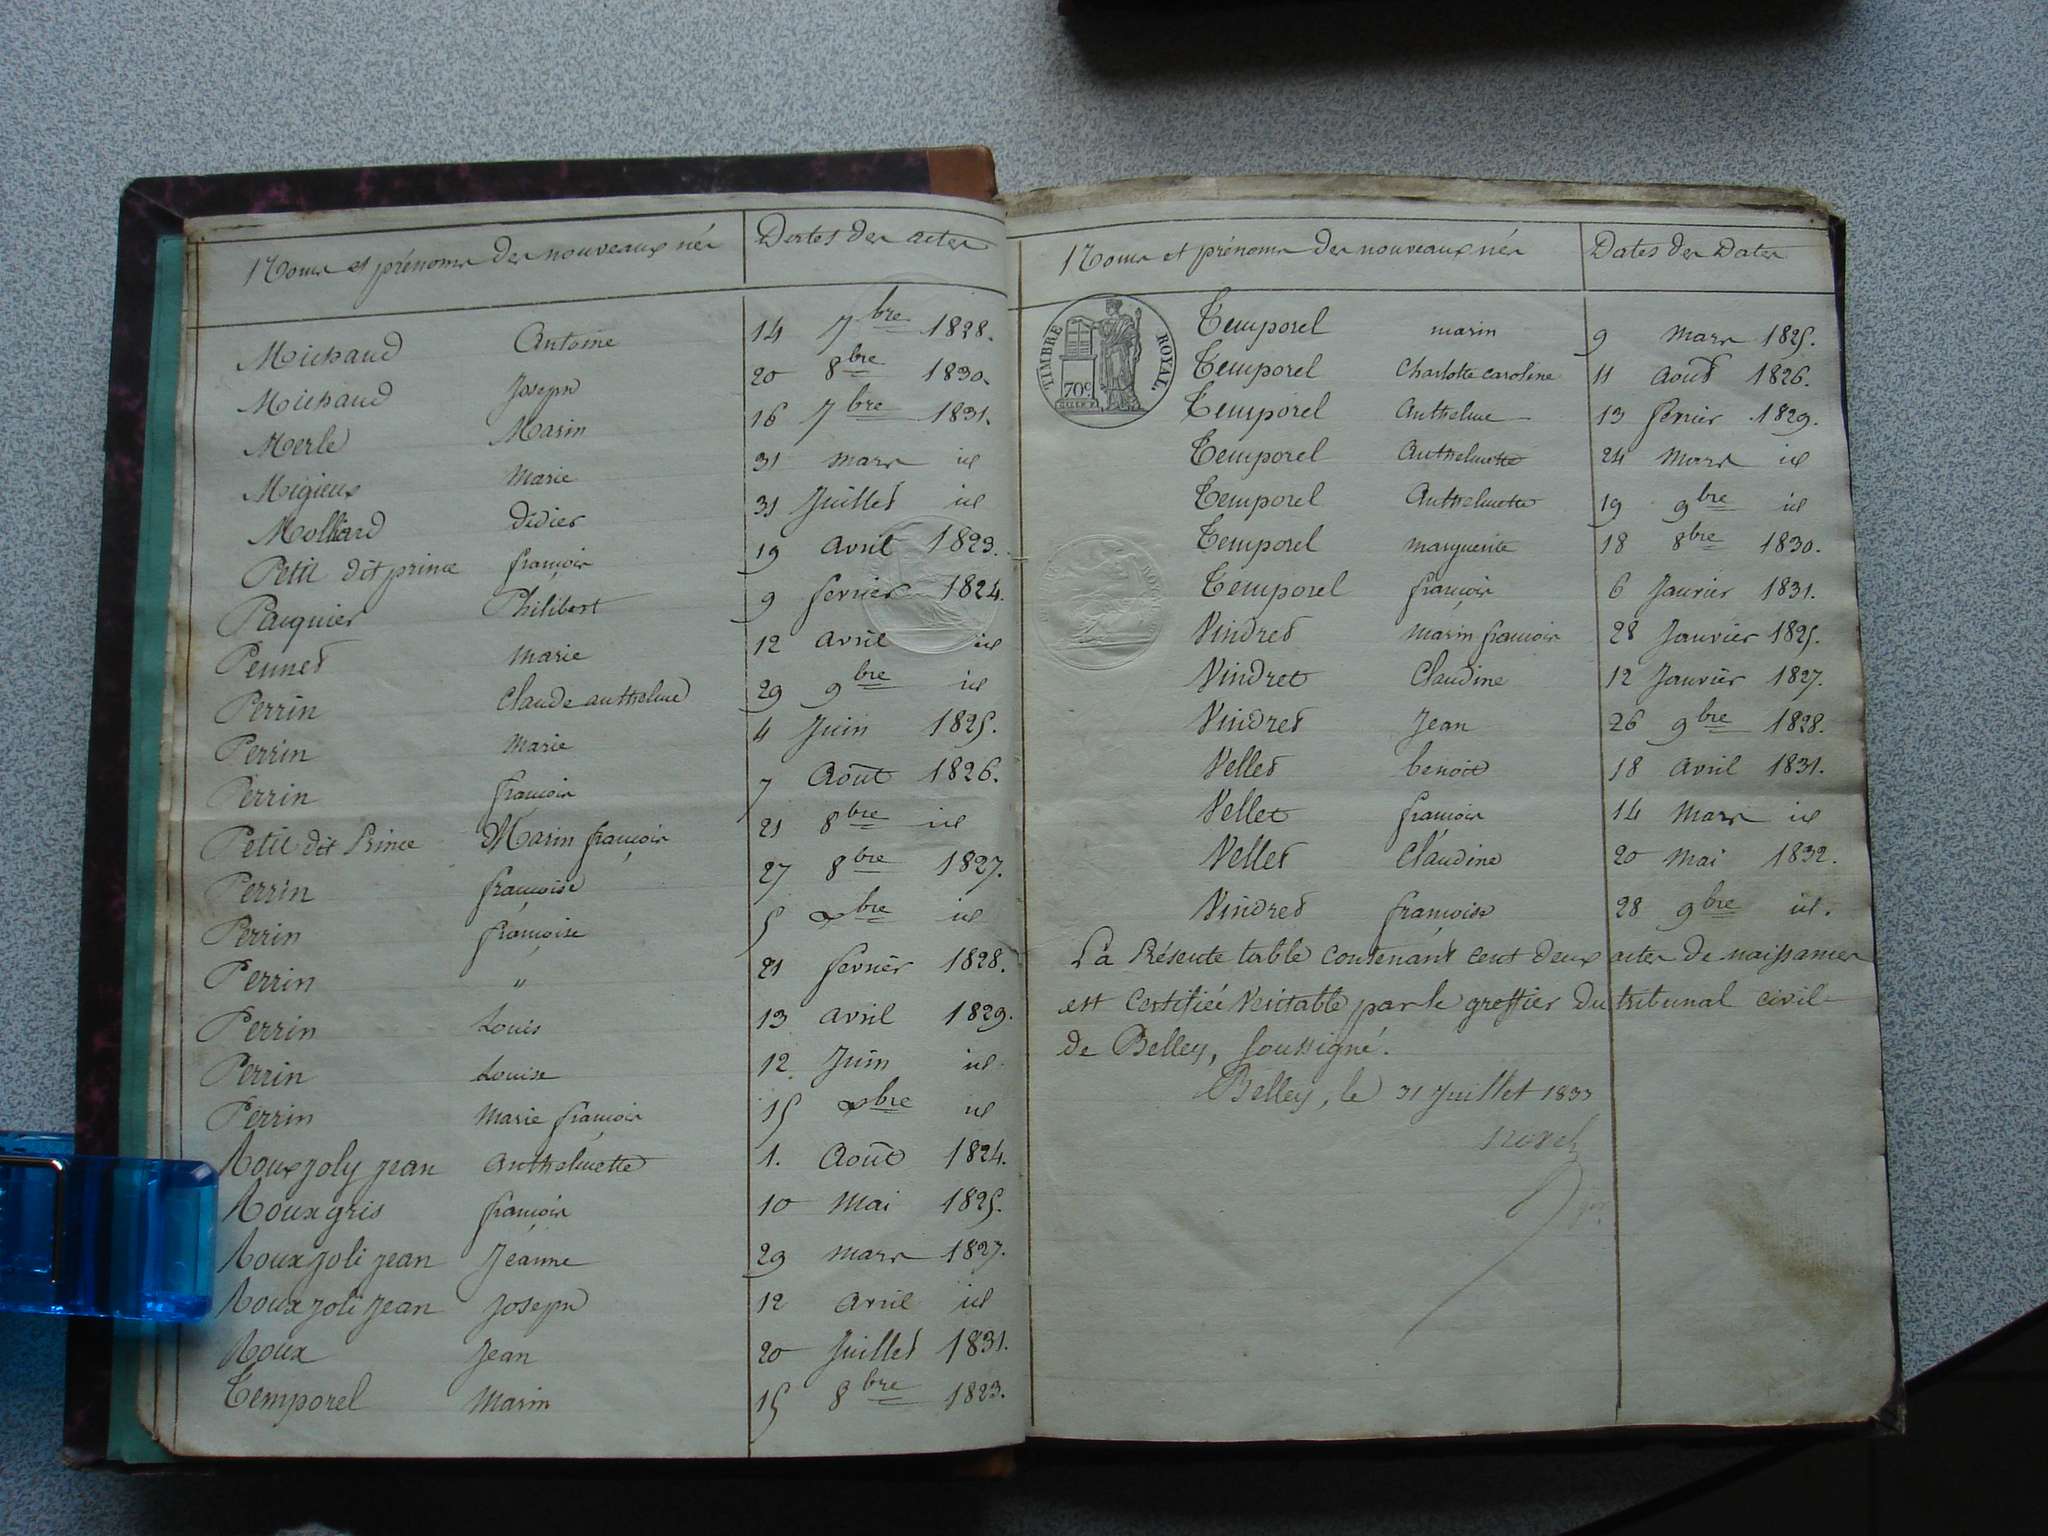 Noms et prénoms des nouveaux nés Dates des actes
Michaud Antoine 14 7bre 1828.
Michaud Joseph 20 8bre 1830.
Merle Marin 16 7bre 1831.
Migieux Marie 31 mars id
Molliard Dédier 31 Juillet id
Petit dit prince françois 19 avril 1823.
Pauquier Philibert 9 fevrier 1824.
Pennet Marie 12 avril id
Perrin Claude anthelme 29 9bre id
Perrin Marie 4 Juin 1825.
Perrin françois 7 Août 1826.
Petit dit Prince Marin françois 21 8bre id
Perrin françoise 27 8bre 1827.
Perrin françoise 5 xbre id
Perrin " 21 fevrier 1828.
Perrin Louis 13 avril 1829.
Perrin Louise 12 Juin id
Perrin Marie françois 15 xbre id
Roux joly jean Anthelmette 1. Août 1824.
Roux gris françois 10 Mai 1825.
Roux joli jean Jeanne 29 mars 1827.
Roux joli Jean Joseph 12 avril id
Roux Jean 20 Juillet 1831.
Temporel Marin 15 8bre 1823.
Noms et prénoms des nouveaux nés Dates des Dates
TIMBRE ROYAL.
70c
Temporel marin 9 mars 1825.
Temporel Charlotte caroline 11 Août 1826.
Temporel Anthelme 13 fevrier 1829.
Temporel Anthelmette 24 Mars id
Temporel Anthelmette 19 9bre id
Temporel marguerite 18 8bre 1830.
Temporel françois 6 Janvier 1831.
Vindret Marin françois 28 Janvier 1825.
Vindret Claudine 12 Janvier 1827.
Vindret Jean 26 9bre 1828.
Vellet benoit 18 Avril 1831.
Vellet françois 14 Mars id
Vellet Claudine 20 Mai 1832.
Vindret françoise 28 9bre id.
La Présente table contenant cent deux actes de naissances
est Certifiée Véritable par le greffier du tribunal civil
de Belley, soussigné.
Belley, le 31 Juillet 1833